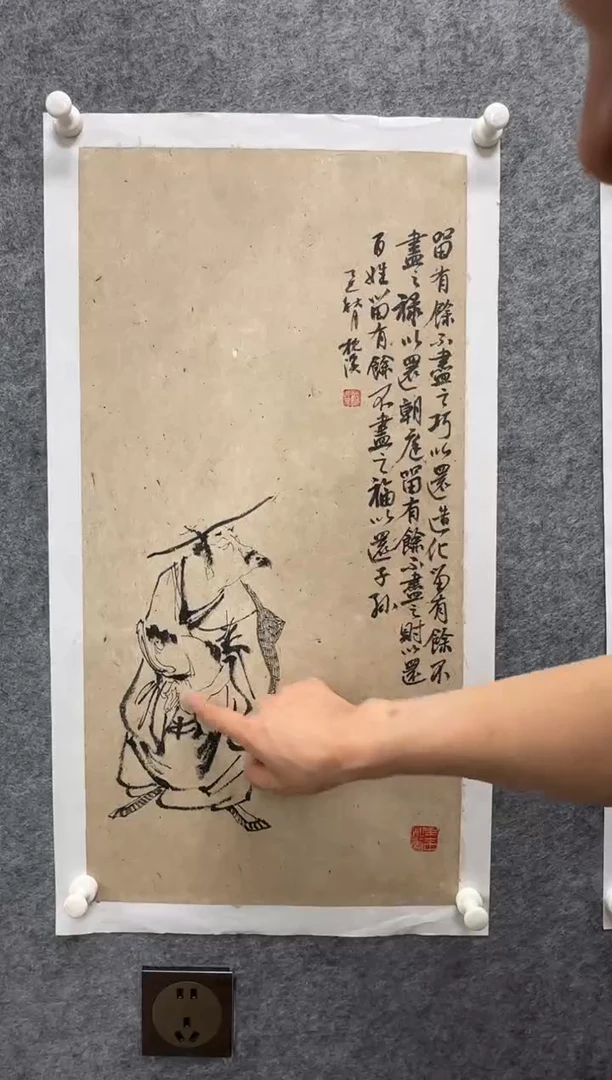 留有餘不盡之巧以還造化留有餘不
盡之祿以還朝庭留有餘不盡之財以還
百姓留有餘不盡之福以還子孫
秋月